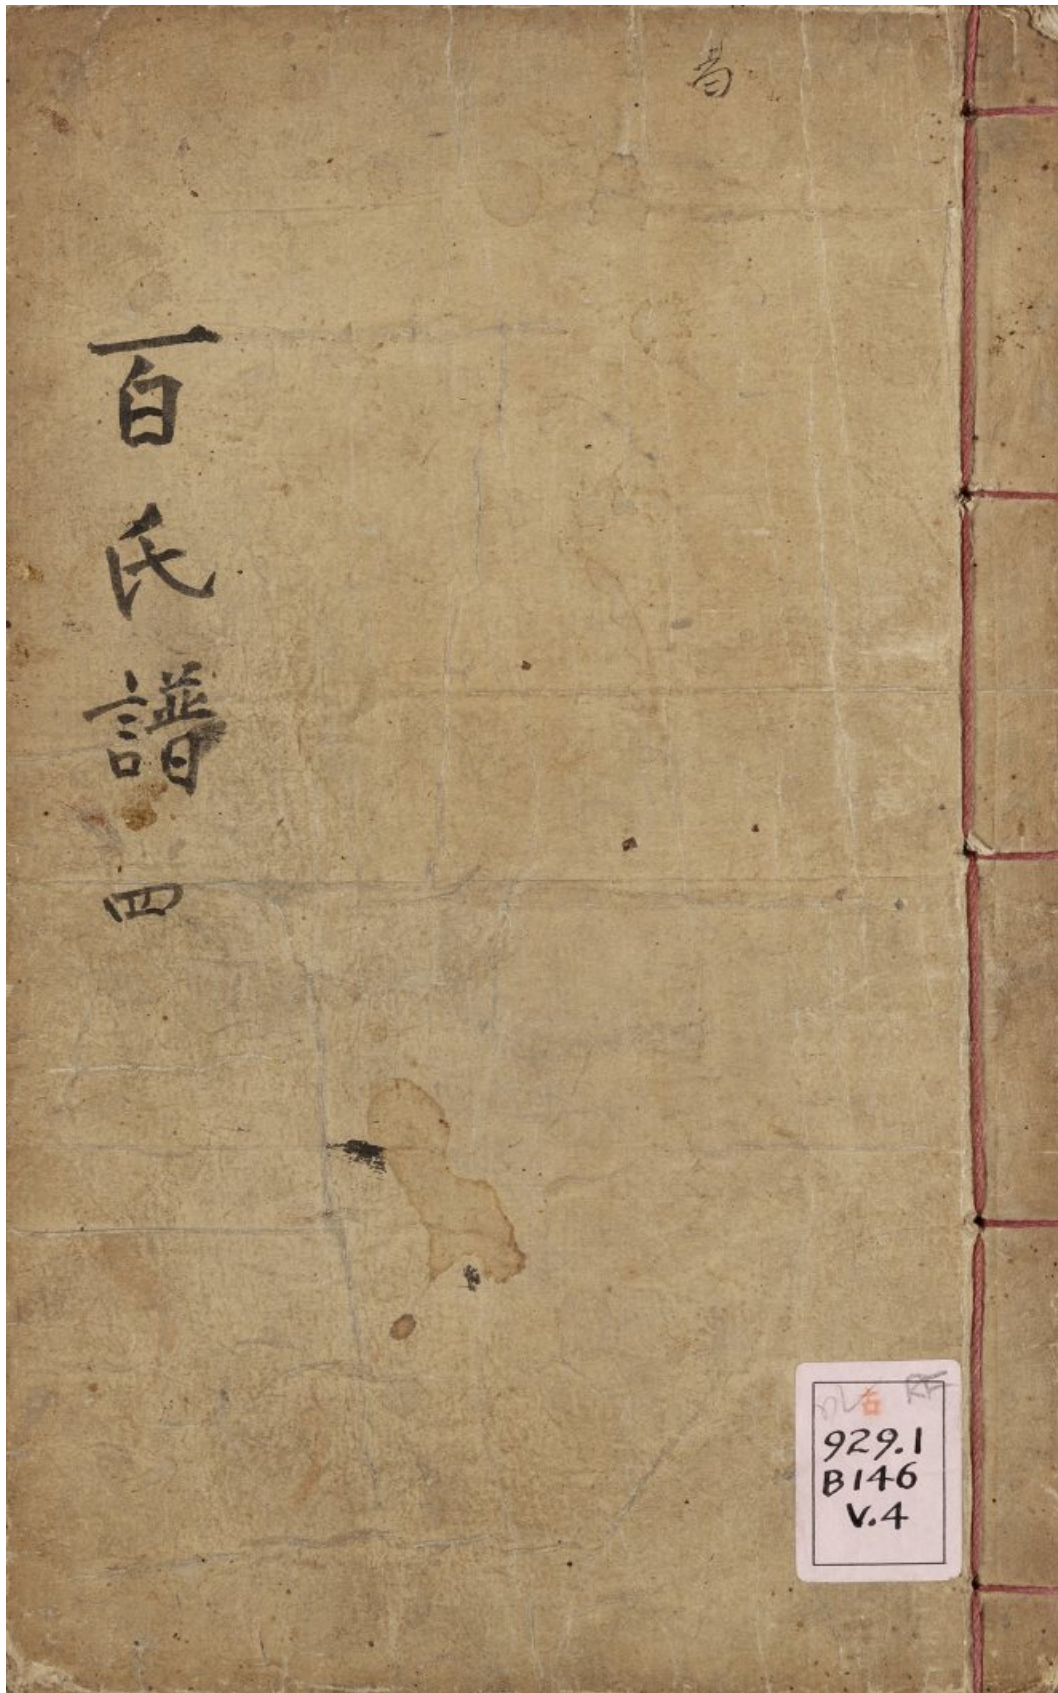 百氏譜 四
石
929.1
B146
V.4